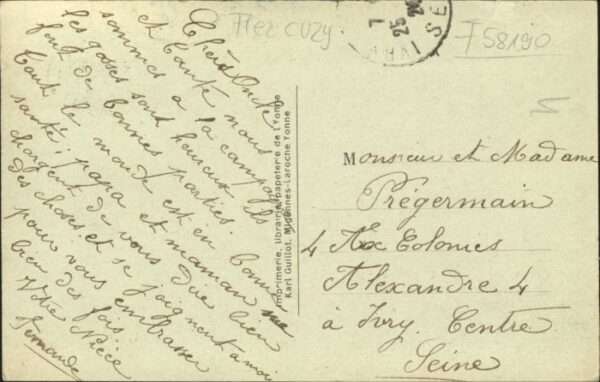 Flez cuzy
F 58190
Chers Oncle
et tante nous
sommes a la campagne
les gosses sont heureux ils
font de bonnes parties.
tout le monde est en bonne
santé; papa et maman me
chargent de vous dire bien
des choses et se joignent a moi
pour vous embrasser
bien des fois
Votre Nièce
Fernande
Imprimerie, Librairie, papeterie de l'Yonne
Karl Guillot, Migennes-Laroche Yonne
Monsieur et Madame
Prégermain
4 Colonies
Alexandre 4
à Ivry. Centre
Seine